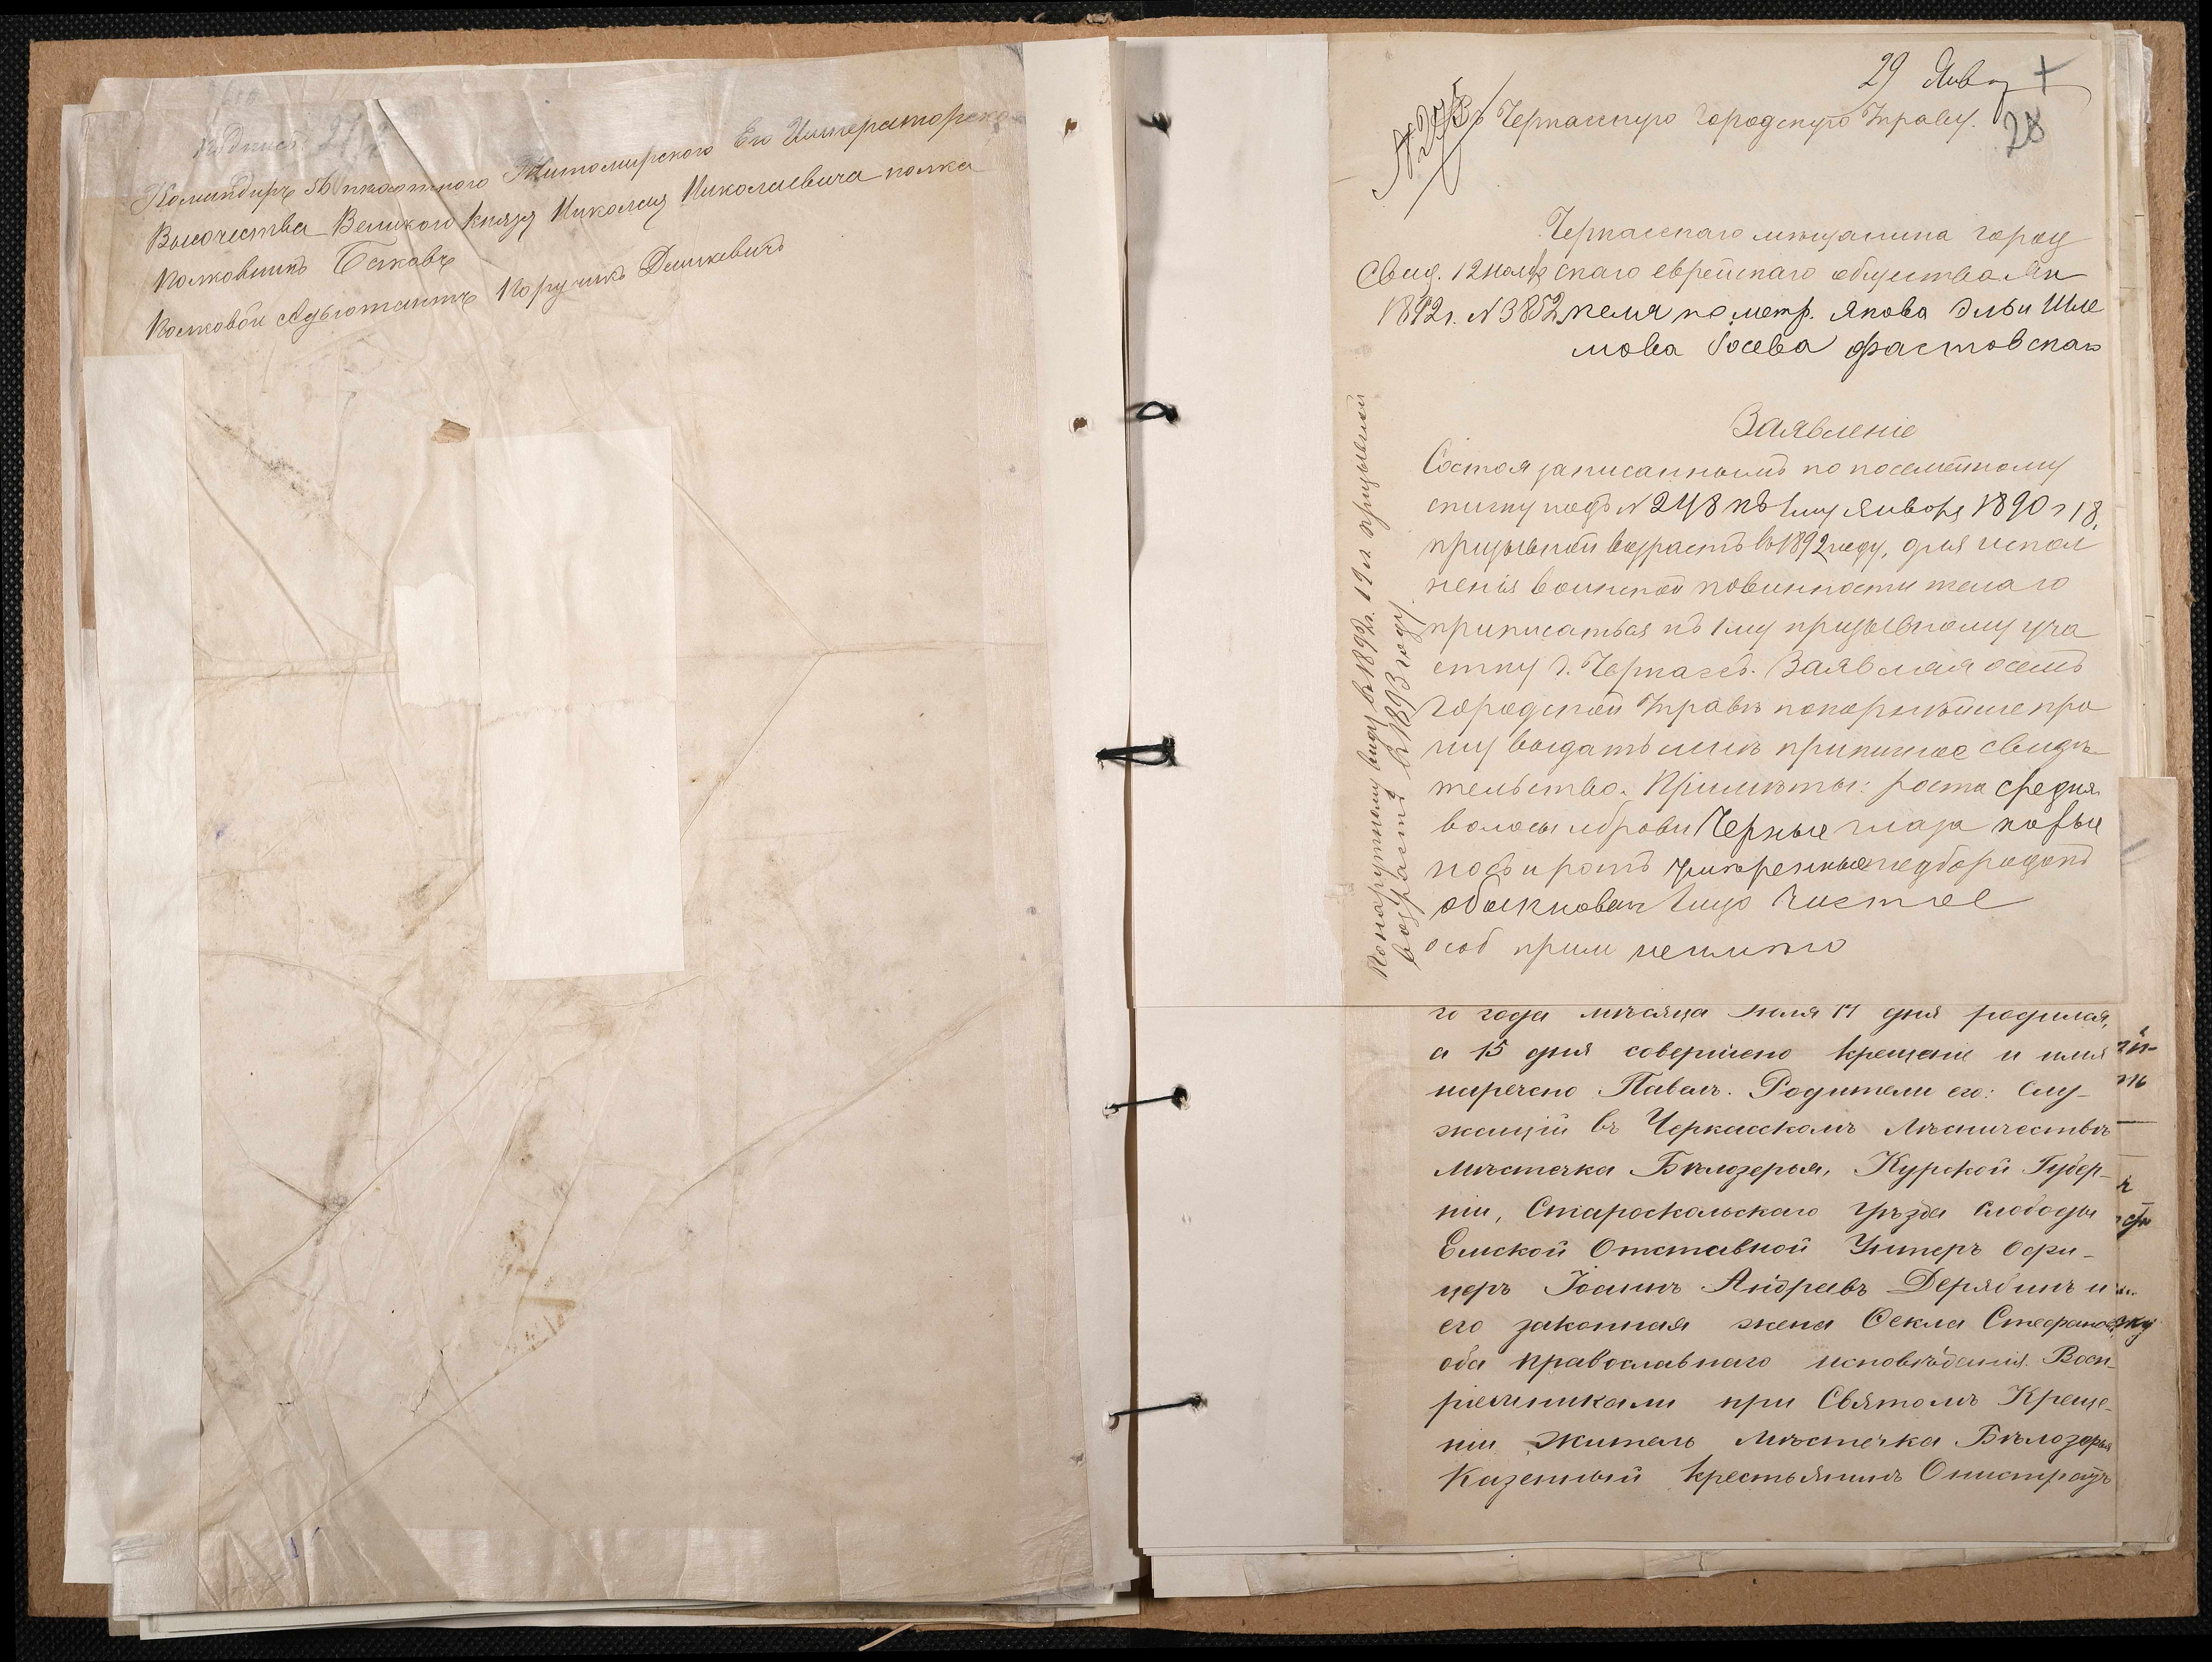 Командиръ 56 пехотного Житомирского Его Императорска
Высочества Великого Князя Николая Николаевича полка
Полковникъ
Полковой Адъютантъ Поручикъ Дашкевичъ
29 Янв
28
№ 275
Въ Черкасскую Городскую Управу.
Черкасскаго мѣщанина город
Свид. 12 ноября скаго еврейскаго общества Ян
1892г. № 3852 келя по метр. Якова Эльи Шле
мова Іосева Фастовскаго
Заявленіе
Состоя записаннымъ по посемейному
списку подъ № 248 къ 1му Января 1890 г 18,
призывной возрастъ въ 1892 году, для испол
ненія воинской повинности желаю
приписаться къ 1му призывному уча
стку г. Черкассъ. Заявляя о семъ
Городской Управѣ покорнѣйше про
шу выдать мнѣ приписное свидѣ
тельство. Примѣты: роста средня
волосы и брови Черные глаза карые
носъ и ротъ умѣренные подбородокъ
обыкновен лицо чистое
особ прим неимѣю
По наружному виду въ 1892г. 19 л призывной
возрастъ въ 1893 году
го года мѣсяца Іюля 11 дня родился,
а 15 дня совершено крещеніе и имя
наречено Павелъ. Родители его: Слу-
жащій въ Черкасскомъ Лѣсничествѣ
Мѣстечка Бѣлозерья, Курской Губер-
ніи, Староскольскаго Уѣзда слободы
Емской Отставной Унтеръ Офи-
церъ Іоаннъ Андреевъ Дерябинъ и
его законная жена Фекла Стефанов
оба православнаго исповѣданія. Восп-
ріемниками при Святомъ Креще-
ніи Житель Мѣстечка Бѣлозерья
Казенный крестьянинъ